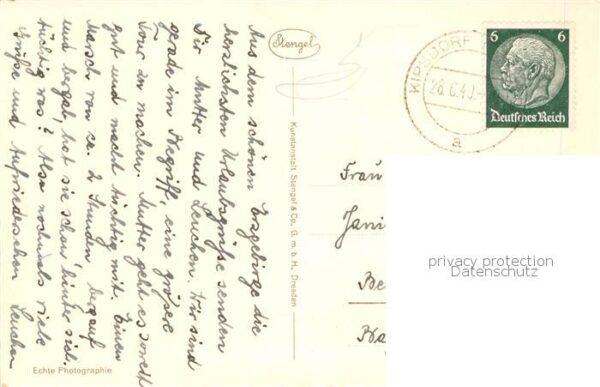 Stengel
KIPSDORF
26.6.40
a
6 6
Deutsches Reich
Aus dem schönen Erzgebirge die
herzlichsten Urlaubsgrüße senden
Dir Mutter und Lenchen. Wir sind
gerade im Begriff, eine größere
Tour zu machen. Mutter geht es soweit
gut und macht tüchtig mit. Einen
Marsch von ca. 2 Stunden bergauf
und bergab, hat sie schon hinter sich.
tüchtig was? Also nochmals viele
Grüße und Aufwiedersehen Lenchen
Kunstanstalt Stengel & Co. G. m. b. H., Dresden
Frau
Jani
Be
Echte Photographie
privacy protection
Datenschutz